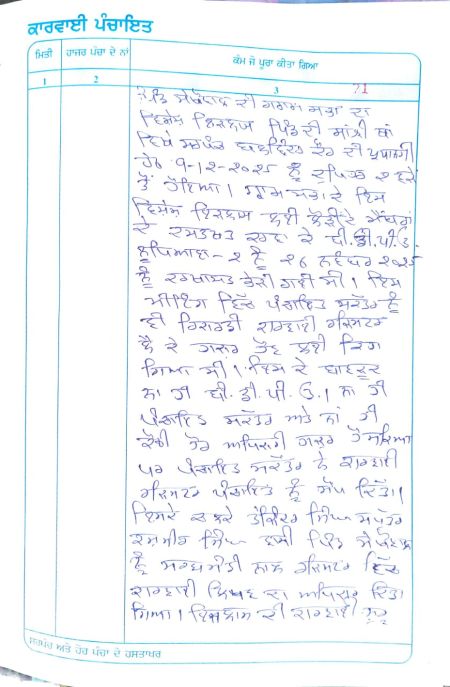 ਕਾਰਵਾਈ ਪੰਚਾਇਤ
ਮਿਤੀ ਹਾਜਰ ਪੰਚਾ ਦੇ ਨਾਂ ਕੰਮ ਜੋ ਪੂਰਾ ਕੀਤਾ ਗਿਆ
1 2 3 21
ਪਿੰਡ ਸੇਖੋਵਾਲ ਦੀ ਗਰਾਮ ਸਭਾ ਦਾ
ਵਿਸ਼ੇਸ਼ ਇਜਲਾਸ ਪਿੰਡ ਦੀ ਸਾਂਝੀ ਥਾਂ
ਵਿਖੇ ਸਰਪੰਚ ਕੌਰ ਦੀ ਪ੍ਰਧਾਨਗੀ
ਹੇਠ 9-12-2025 ਨੂੰ ਦੁਪਿਹਰ 2 ਵਜੇ
ਤੋਂ ਹੋਇਆ। ਗ੍ਰਾਮ ਸਭਾ ਦੇ ਇਸ
ਵਿਸ਼ੇਸ਼ ਇਜਲਾਸ ਲਈ ਲੋੜੀਂਦੇ ਮੈਂਬਰਾਂ
ਦੇ ਦਸਤਖਤ ਕਰਵਾ ਕੇ ਬੀ.ਡੀ.ਪੀ.ਓ.
ਲੁਧਿਆਣਾ-2 ਨੂੰ 26 ਨਵੰਬਰ 2025
ਨੂੰ ਦਰਖਾਸਤ ਦਿੱਤੀ ਗਈ ਸੀ। ਇਸ
ਮੀਟਿੰਗ ਵਿੱਚ ਪੰਚਾਇਤ ਸਕੱਤਰ ਨੂੰ
ਵੀ ਕਾਰਵਾਈ ਰਜਿਸਟਰ
ਲੈ ਕੇ ਹਾਜ਼ਰ ਹੋਣ ਲਈ ਕਿਹਾ
ਗਿਆ ਸੀ। ਇਸ ਦੇ ਬਾਵਜੂਦ
ਨਾ ਹੀ ਬੀ.ਡੀ.ਪੀ.ਓ. ਨਾ ਹੀ
ਪੰਚਾਇਤ ਸਕੱਤਰ ਅਤੇ ਨਾਂ ਹੀ
ਕੋਈ ਹੋਰ ਅਧਿਕਾਰੀ ਹਾਜ਼ਰ ਹੋਇਆ
ਪਰ ਪੰਚਾਇਤ ਸਕੱਤਰ ਨੇ ਕਾਰਵਾਈ
ਰਜਿਸਟਰ ਪੰਚਾਇਤ ਨੂੰ ਸੌਂਪ ਦਿੱਤਾ।
ਇਸਦੇ ਸਿੰਘ ਸਪੁੱਤਰ
ਕਸ਼ਮੀਰ ਸਿੰਘ ਵਾਸੀ ਪਿੰਡ ਸੇਖੋਵਾਲ
ਨੂੰ ਸਰਬਸੰਮਤੀ ਨਾਲ ਰਜਿਸਟਰ ਵਿੱਚ
ਕਾਰਵਾਈ ਲਿਖਣ ਦਾ ਅਧਿਕਾਰ ਦਿੱਤਾ
ਗਿਆ। ਇਜਲਾਸ ਦੀ ਕਾਰਵਾਈ
ਸਰਪੰਚ ਅਤੇ ਹੋਰ ਪੰਚਾ ਦੇ ਹਸਤਾਖਰ